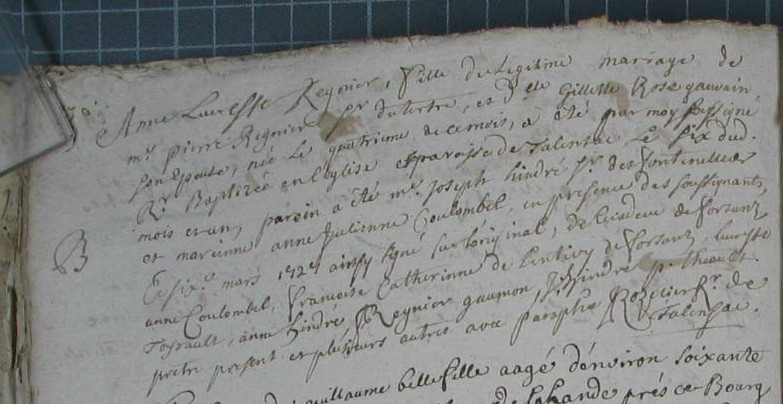 Anne Lucresse Regnier, fille de legitime mariage de
mr. pierre Regnier sr du tertre, et d'elle Gillette Rose gauvain
son Epouse, née Le quatrieme de ce mois, a été par moy soussigné
Rr. Baptizée en l'Eglise et paroisse de Talensac Le six dud.
mois et an, parein a été mr. Joseph hindré sr. des fontenelles
et mareinne anne Julienne Coulombel en presence des soussignants,
Ce six.e mars 1724 ainsy signé sur l'original, de
B
anne Coulombel, francoise Catherinne de de forsanz
anne hindré, Regnier gaumon, J. hindre p. thiault
pretre present et plusieurs autres avec paraphe Rozetier Rr. de
Talensac.
Guillaume bellefille aagé d'environ soixante
de Lalande prés ce Bourg